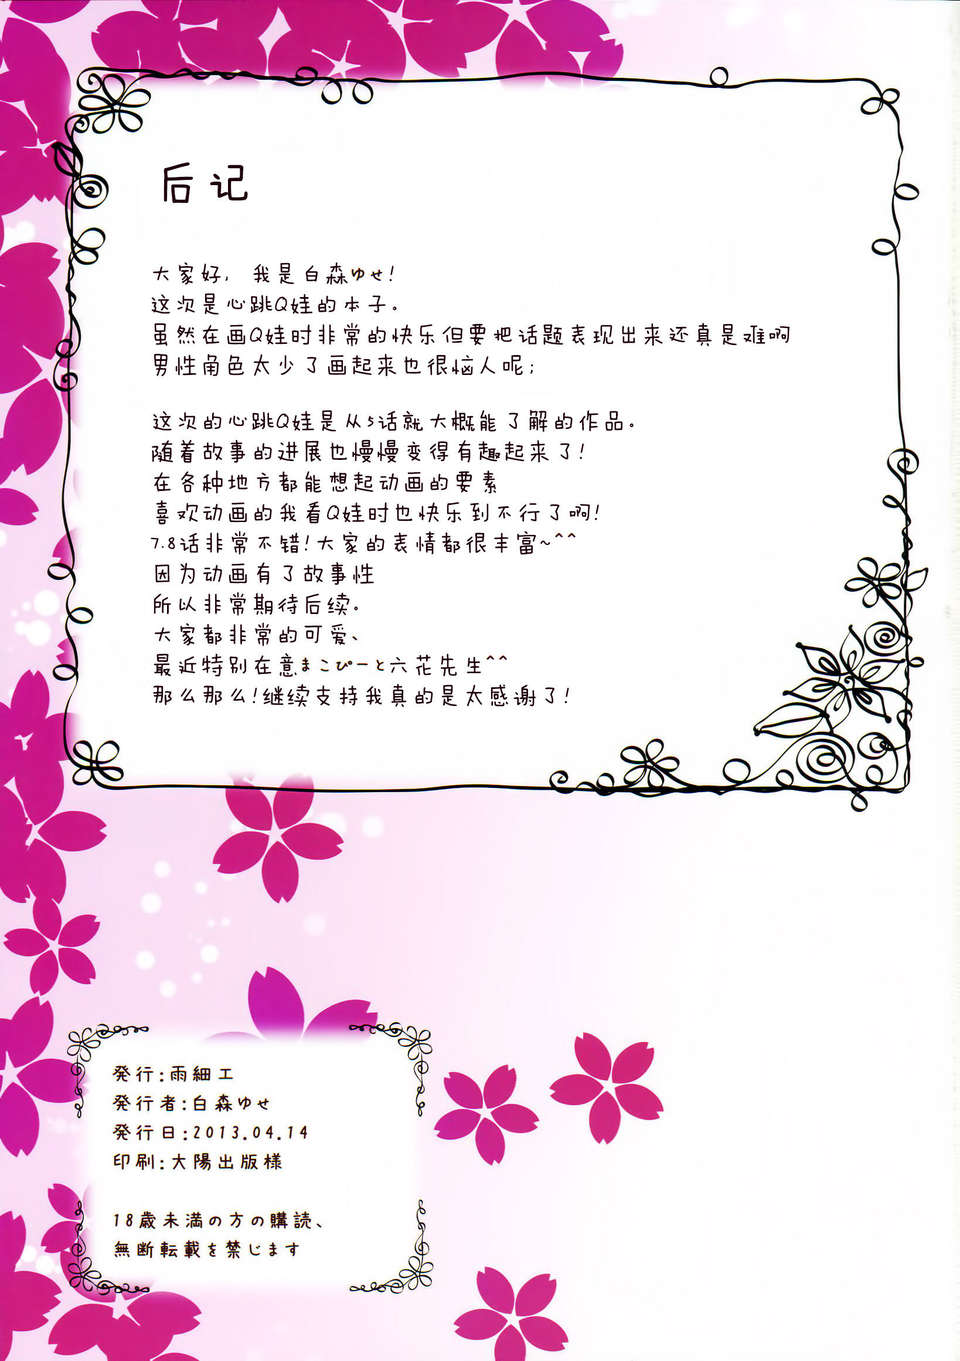 后记
大家好，我是白森ゆせ!
这次是心跳Q娃的本子。
虽然在画Q娃时非常的快乐但要把话题表现出来还真是难啊
男性角色太少了画起来也很恼人呢；
这次的心跳Q娃是从5话就大概能了解的作品。
随着故事的进展也慢慢变得有趣起来了!
在各种地方都能想起动画的要素
喜欢动画的我看Q娃时也快乐到不行了啊!
7.8话非常不错!大家的表情都很丰富~^^
因为动画有了故事性
所以非常期待后续。
大家都非常的可爱、
最近特别在意まこぴーと六花先生^^
那么那么!继续支持我真的是太感谢了!
発行:雨細工
発行者:白森ゆせ
発行日:2013.04.14
印刷:大陽出版様
18歳未満の方の購読、
無断転載を禁じます